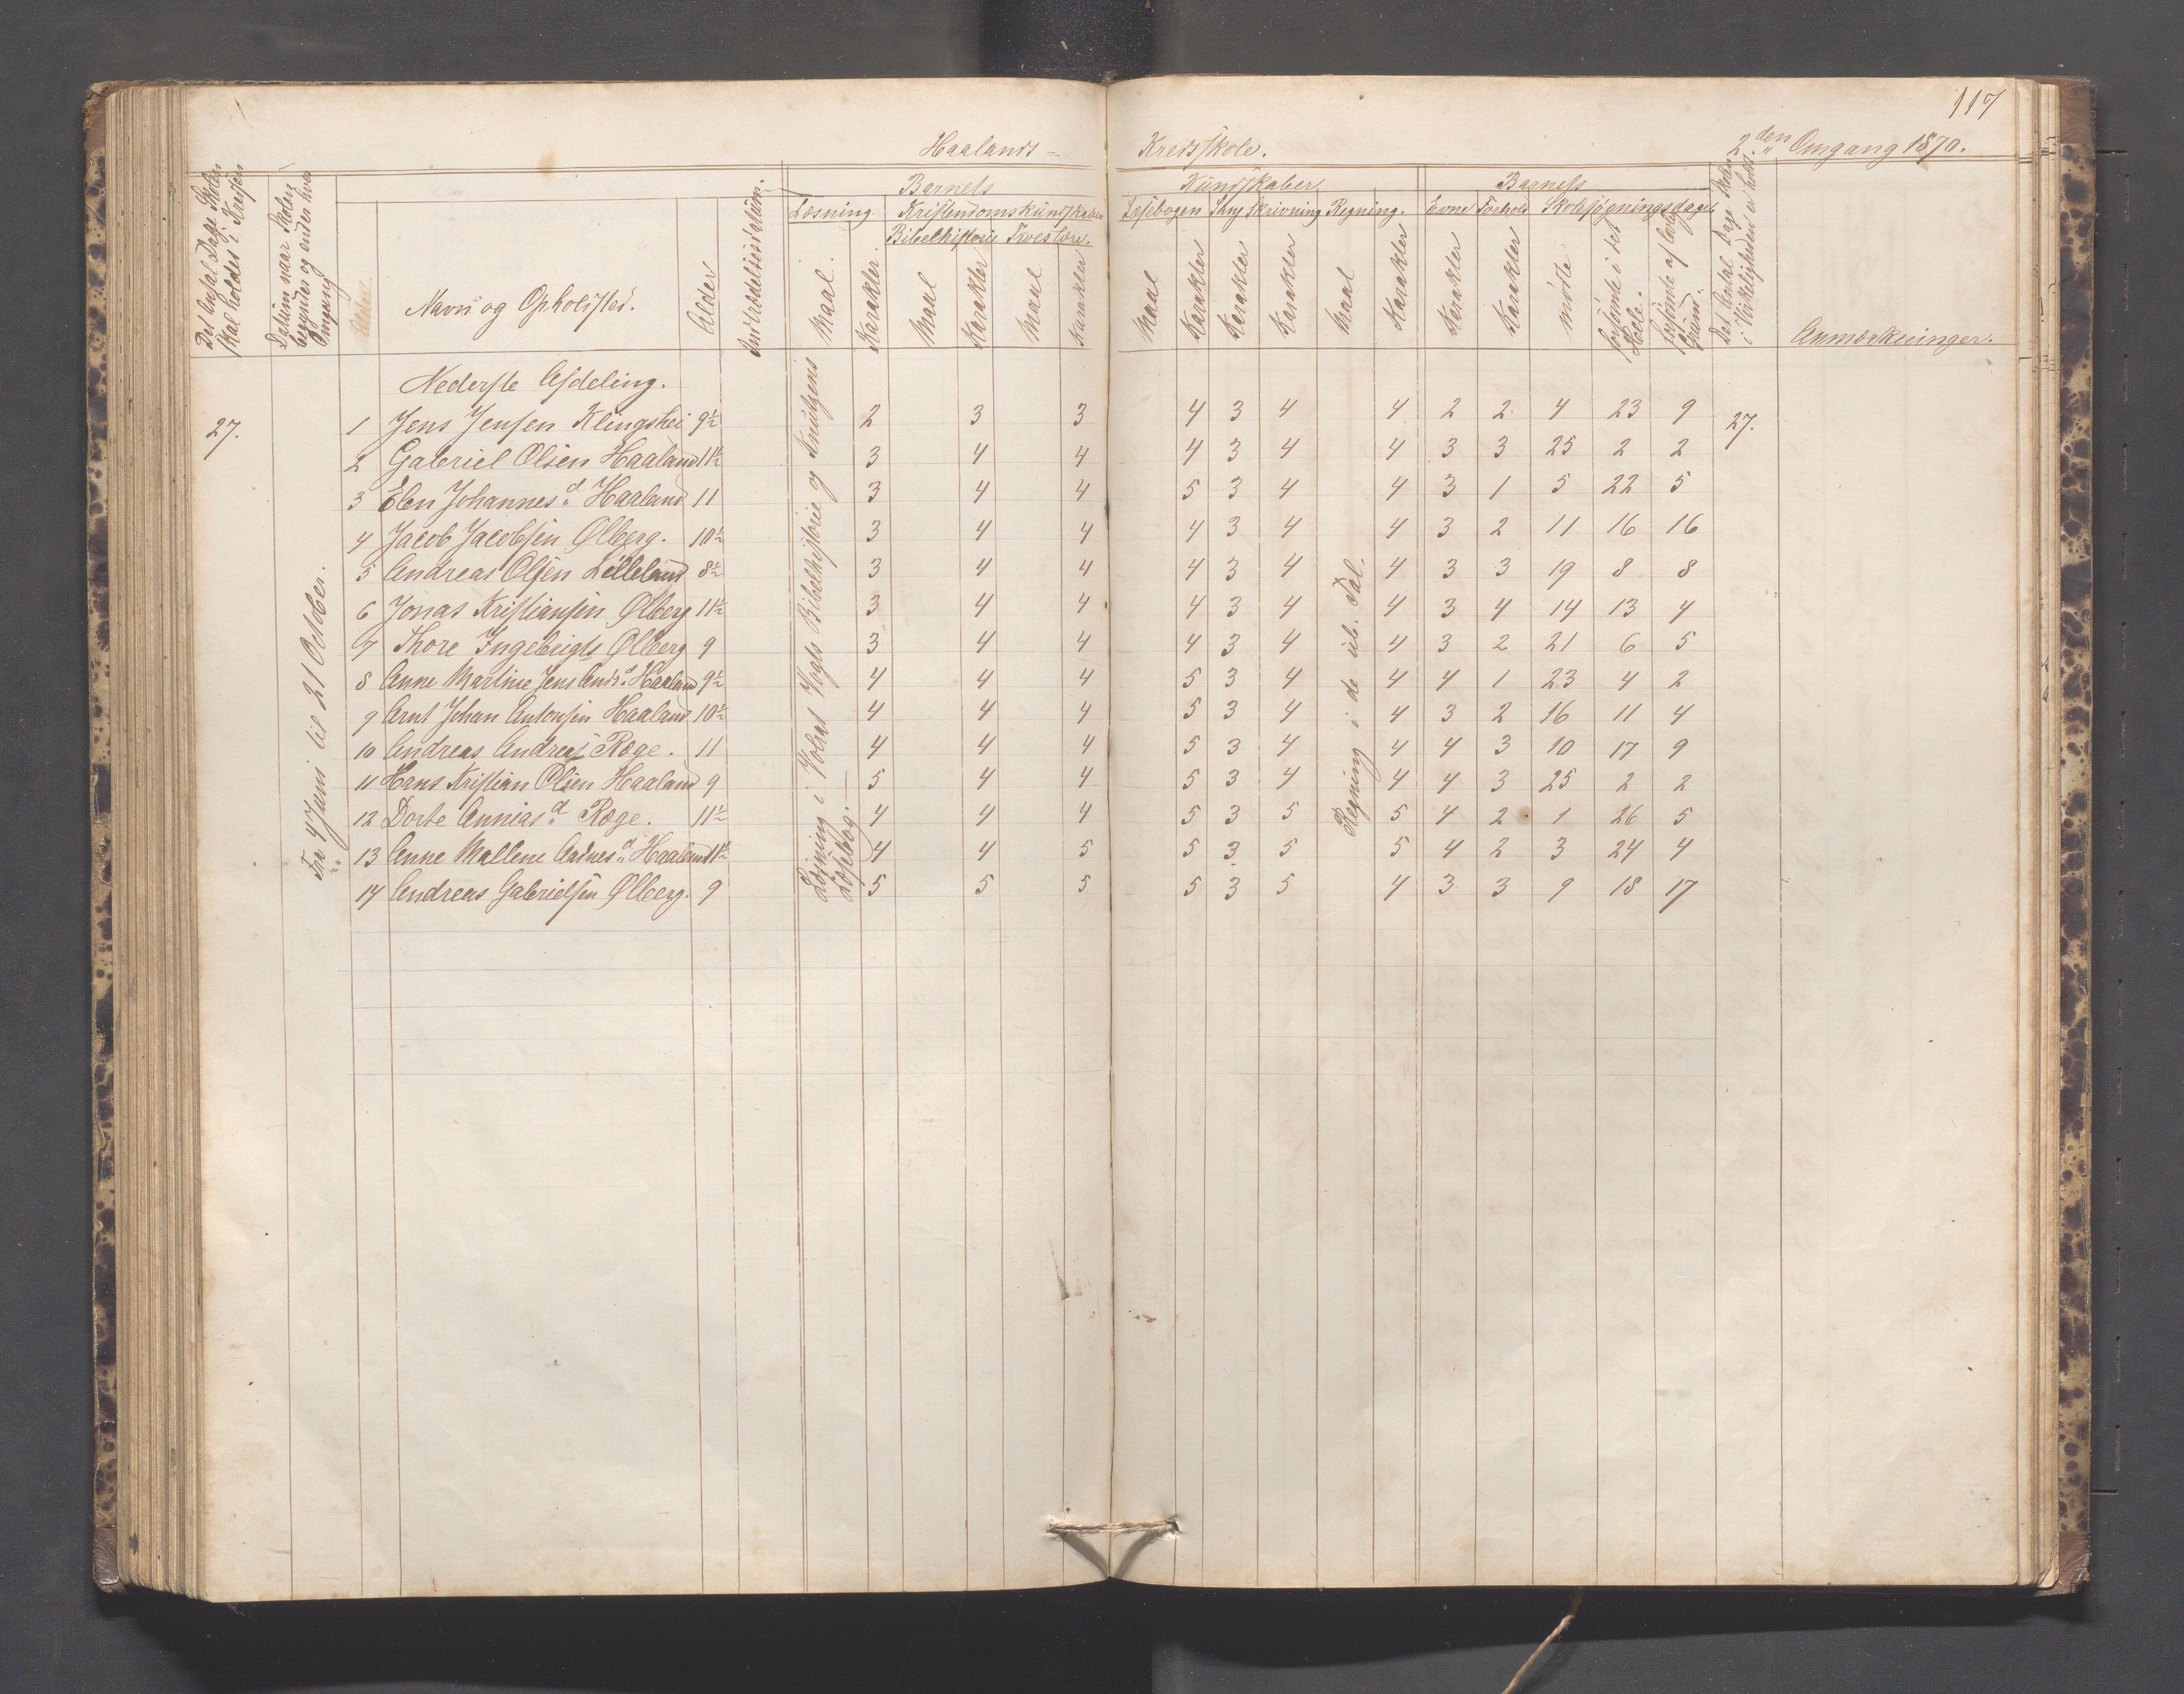 117
Haalands - Kredsskole. 2den Omgang 1870.
Det Antal Dage Skolen skal holdes i Kredsen
Datum naar Skolen begynder og ender hver Omgang
Navn og Opholdssted.
Alder
Indtrædelsesdatum.
Barnets Kundskaber
Læsning. Kristendomskundskaber
Bibelhistorie Troeslære.
Læsebogen Sang Skrivning Regning.
Barnets
Evne Forhold Skolesøgningsdage
Maal. Karakter. Maal Karakter Maal Karakter
Maal Karakter Karakter Karakter Maal Karakter Karakter Karakter mødte forsømte i det Hele. forsømte af lovlig Grund.
Det Antal Dage Skolen i Virkeligheden er holdt.
Anmærkninger.
Nederste Afdeling.
27.
Fra 4 Juni til 21 October.
Læsning i Volrat Vogts Bibelhistorie og Knudsens Læsebog.
Regning i de ub. Tal.
27.
1 Jens Jensen Klingshei 9½ 2 3 3 4 3 4 4 2 2 4 23 9
2 Gabriel Olsen Haaland 11½ 3 4 4 4 3 4 4 3 3 25 2 2
3 Elen Johannesd. Haaland 11 3 4 4 5 3 4 4 3 1 5 22 5
4 Jacob Jacobsen Ølberg. 10½ 3 4 4 4 3 4 4 3 2 11 16 16
5 Andreas Olsen Lilleland 8½ 3 4 4 4 3 4 4 3 3 19 8 8
6 Jonas Kristiansen Ølberg 11½ 3 4 4 4 3 4 4 3 4 14 13 4
7 Thore Ingebrigts Ølberg 9 3 4 4 4 3 4 4 3 2 21 6 5
8 Anne Martine Jens Andr.d Haaland 9½ 4 4 4 5 3 4 4 4 1 23 4 2
9 Arnt Johan Antonsen Haaland 10½ 4 4 4 5 3 4 4 3 2 16 11 4
10 Andreas Andreas Ræge. 11 4 4 4 5 3 4 4 4 3 10 17 9
11 Hans Kristian Olsen Haaland 9 5 4 4 5 3 4 4 4 3 25 2 2
12 Dorte Anniasd. Ræge. 11½ 4 4 4 5 3 5 5 4 2 1 26 5
13 Anne Mallene Aadnesd. Haaland 11½ 4 4 5 5 3 5 5 4 2 3 24 4
14 Andreas Gabrielsen Ølberg. 9 5 5 5 5 3 5 4 3 3 9 18 17